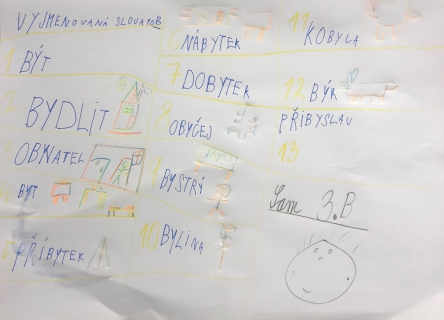 VYJMENOVANÁ SLOVA PO B
1 BÝT
2 BYDLIT
OBYVATEL
4 BYT
5 PŘÍBYTEK
6 NÁBYTEK
7 DOBYTEK
8 OBYČEJ
9 BYSTRÝ
10 BYLINA
11 KOBYLA
12 BÝK
PŘIBYSLAV
13
3.B